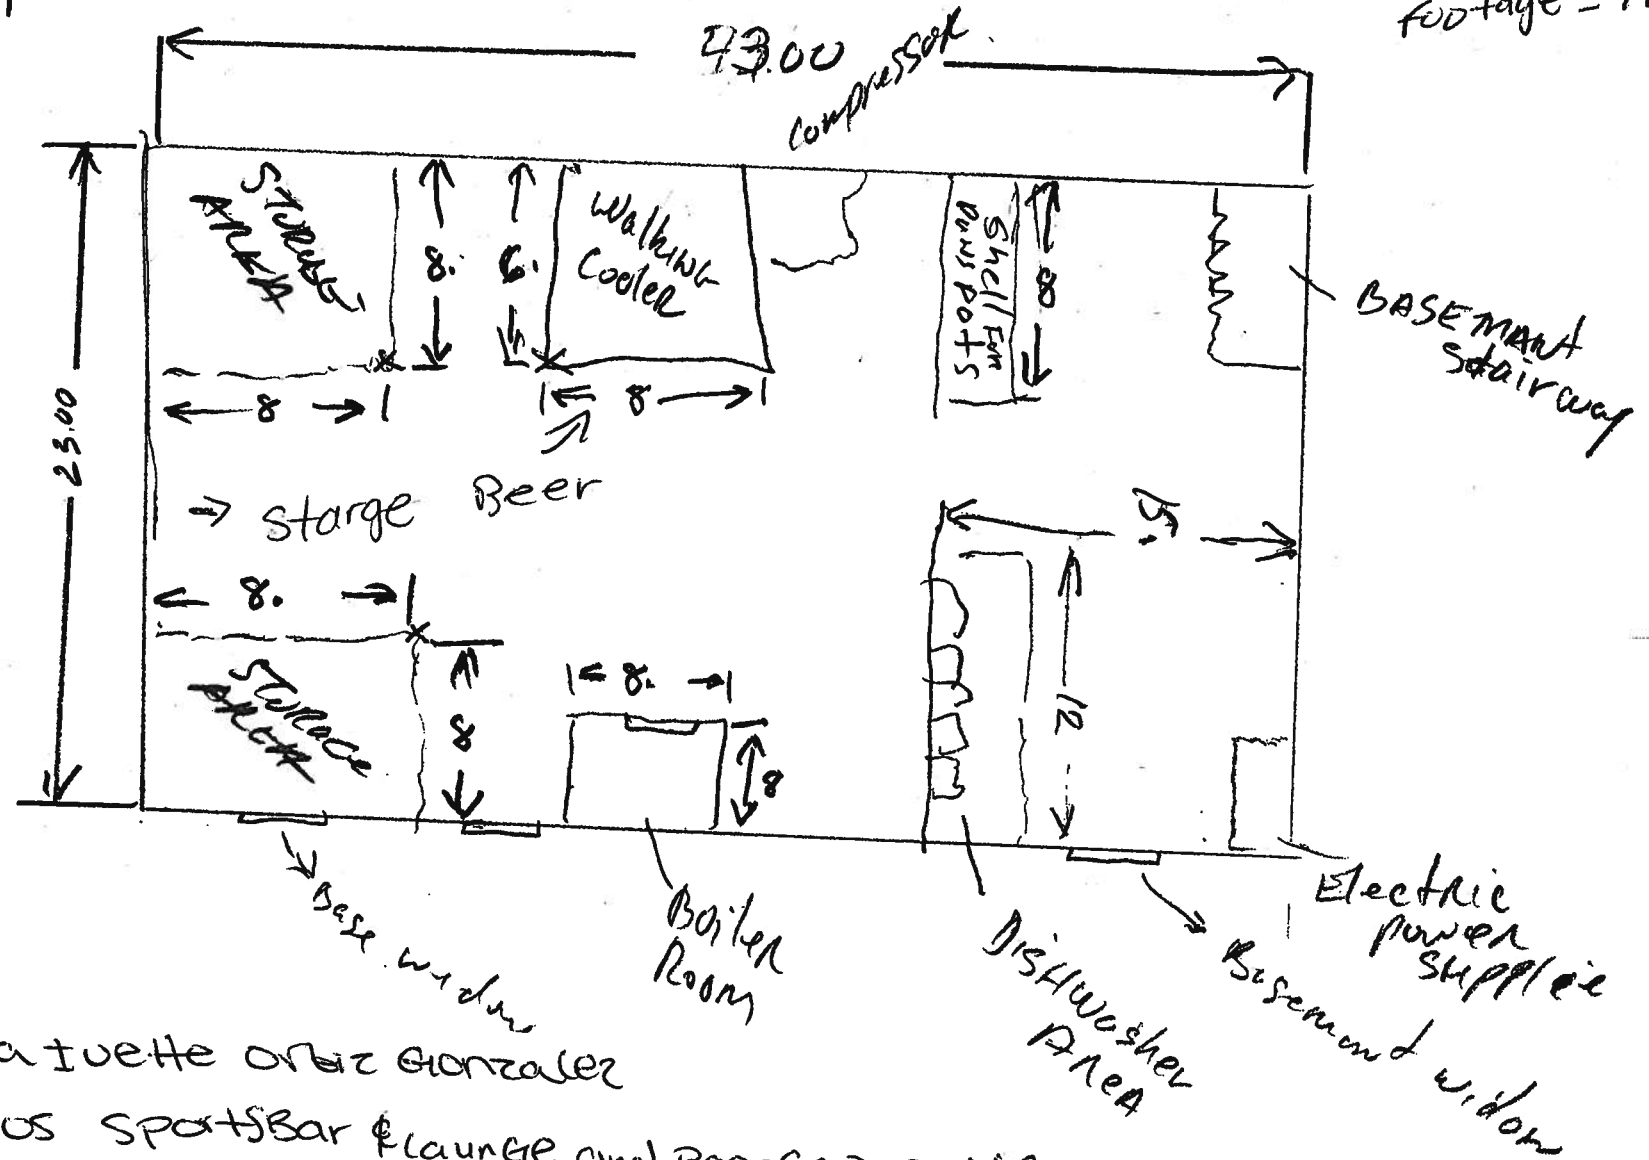 footage -
43.00
compressor
STORAGE
AREA
8.
6.
Walking
Cooler
Shelf For
Pans Pots
8
BASEMANT
stairway
8
8
23.00
→ Starge Beer
5.
8.
STORAGE
AREA
8
8.
8
12
Base widow
Boiler
Room
DisHWasher
AREA
Basemand widow
Electric
power
supplie
a Ivette Ortiz Gonzalez
os SportsBar & Launge and